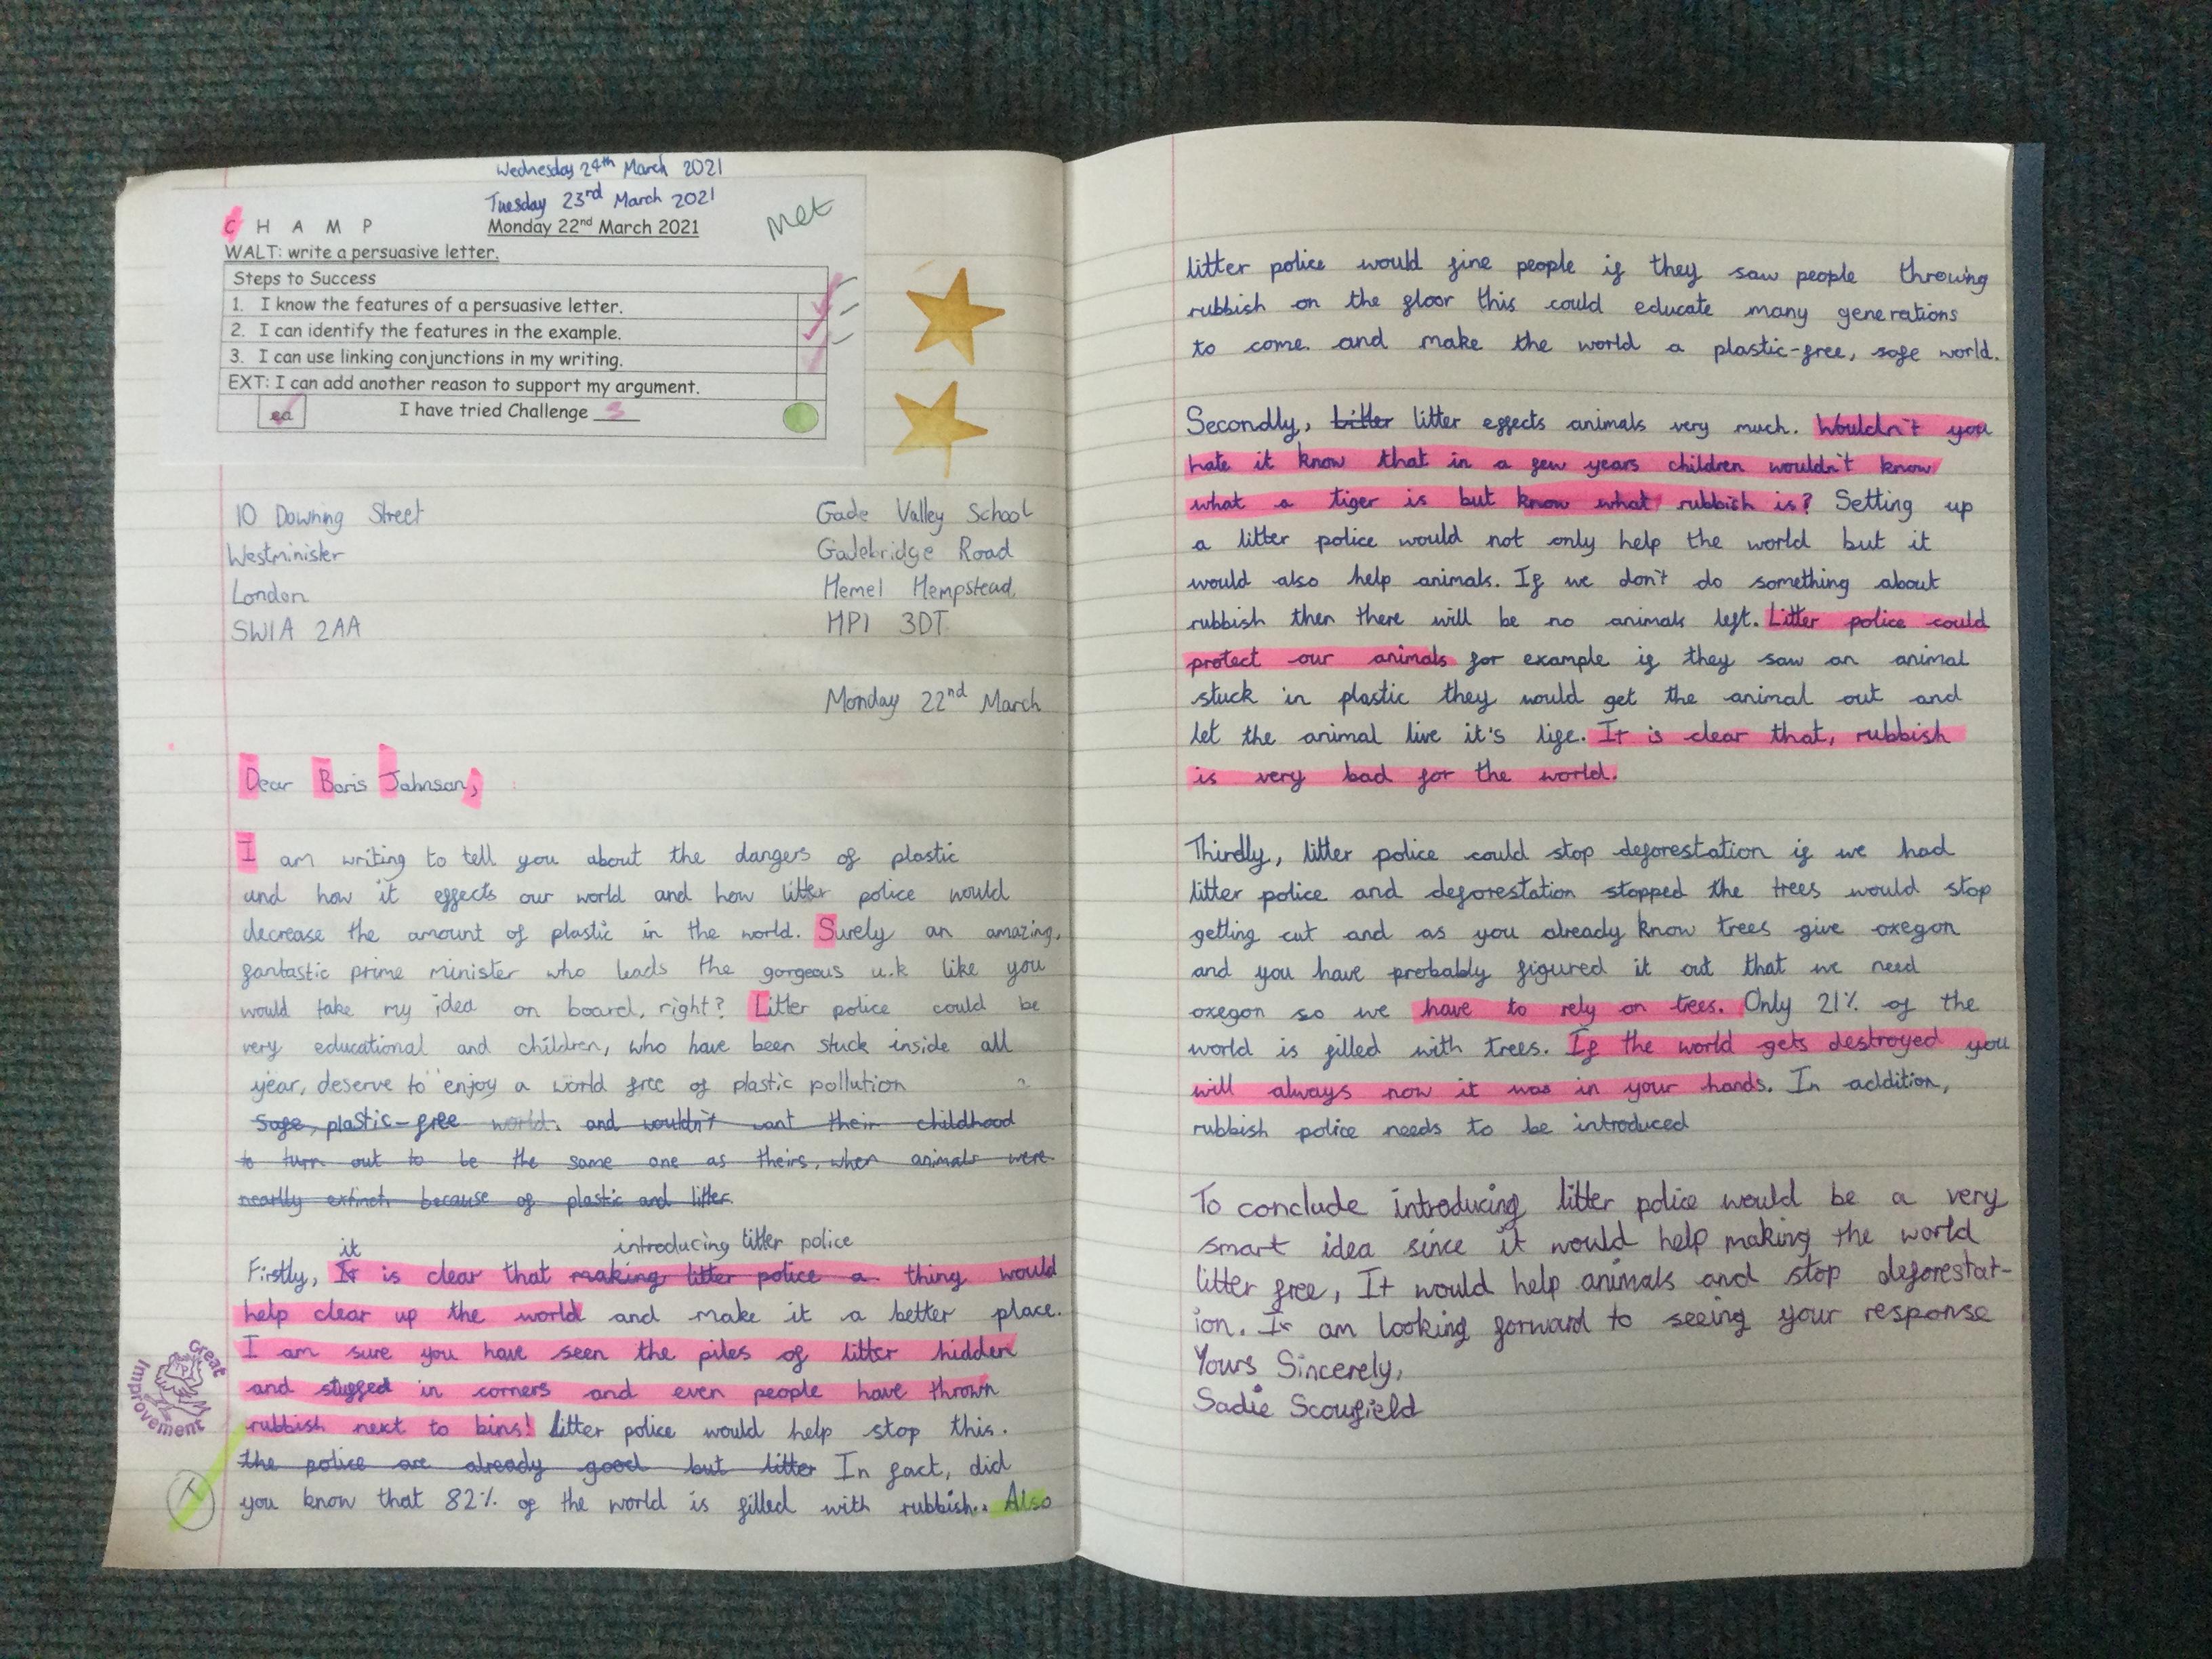 Wednesday 24th March 2021
Tuesday 23rd March 2021
C H A M P
Monday 22nd March 2021
Met
WALT: write a persuasive letter.
Steps to Success
1. I know the features of a persuasive letter.
2. I can identify the features in the example.
3. I can use linking conjunctions in my writing.
EXT: I can add another reason to support my argument.
I have tried Challenge 3
10 Downing Street
Westminister
London
SW1A 2AA
Gade Valley School
Gadebridge Road
Hemel Hempstead
HP1 3DT
Monday 22nd March
Dear Boris Johnson,
I am writing to tell you about the dangers of plastic
and how it effects our world and how litter police would
decrease the amount of plastic in the world. Surely an amazing,
fantastic prime minister who leads the gorgeous u.k like you
would take my idea on board, right? Litter police could be
very educational and children, who have been stuck inside all
year, deserve to enjoy a world free of plastic pollution
safe, plastic-free world. and wouldn't want their childhood
to turn out to be the same one as theirs, when animals were
nearlly extinct because of plastic and litter.
it introducing litter police
Firstly, It is clear that making litter police a thing would
help clear up the world and make it a better place.
I am sure you have seen the piles of litter hidden
and stuffed in corners and even people have thrown
rubbish next to bins! Litter police would help stop this.
the police are already good but litter In fact, did
you know that 82% of the world is filled with rubbish.. Also
Great Improvement
T
litter police would fine people if they saw people throwing
rubbish on the floor this could educate many generations
to come and make the world a plastic-free, safe world.
Secondly, litter effects animals very much. Wouldn't you
hate it know that in a few years children wouldn't know
what a tiger is but know what rubbish is? Setting up
a litter police would not only help the world but it
would also help animals. If we don't do something about
rubbish then there will be no animals left. Litter police could
protect our animals for example if they saw an animal
stuck in plastic they would get the animal out and
let the animal live it's life. It is clear that, rubbish
is very bad for the world.
Thirdly, litter police could stop deforestation if we had
litter police and deforestation stopped the trees would stop
getting cut and as you already know trees give oxegon
and you have probably figured it out that we need
oxegon so we have to rely on trees. Only 21% of the
world is filled with trees. If the world gets destroyed you
will always now it was in your hands. In addition,
rubbish police needs to be introduced
To conclude introducing litter police would be a very
smart idea since it would help making the world
litter free, It would help animals and stop deforestat-
ion. I am looking forward to seeing your response
Yours Sincerely,
Sadie Scoufield